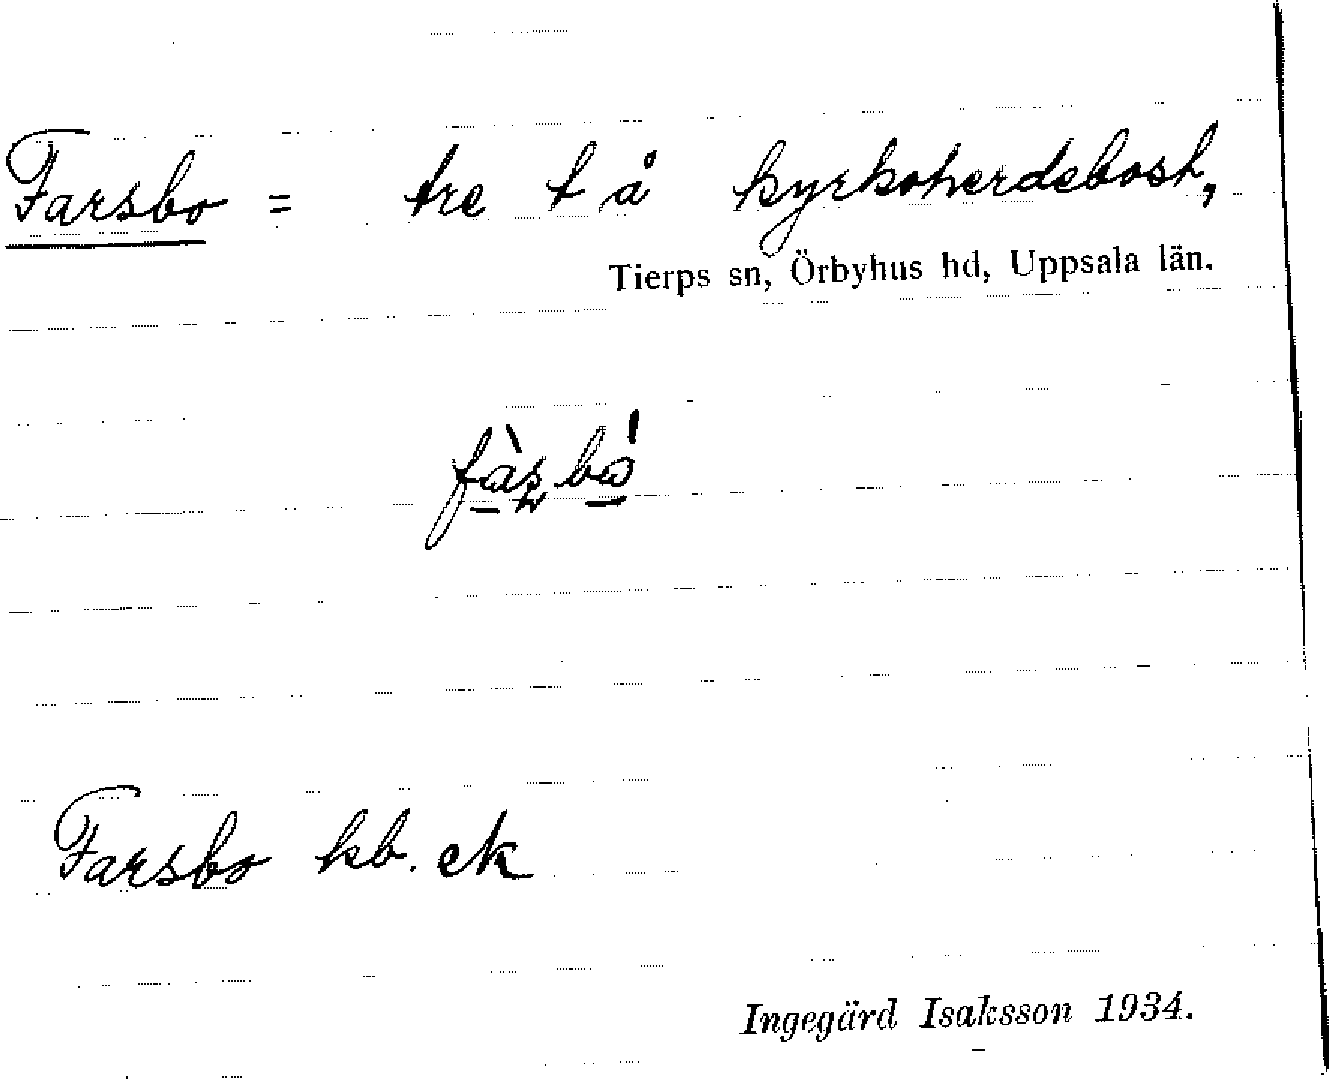 Farsbo = tre t å kyrkoherdebost,
Tierps sn, Örbyhus hd, Uppsala län.
Farsbo kb. ek
Ingegärd Isaksson 1934.